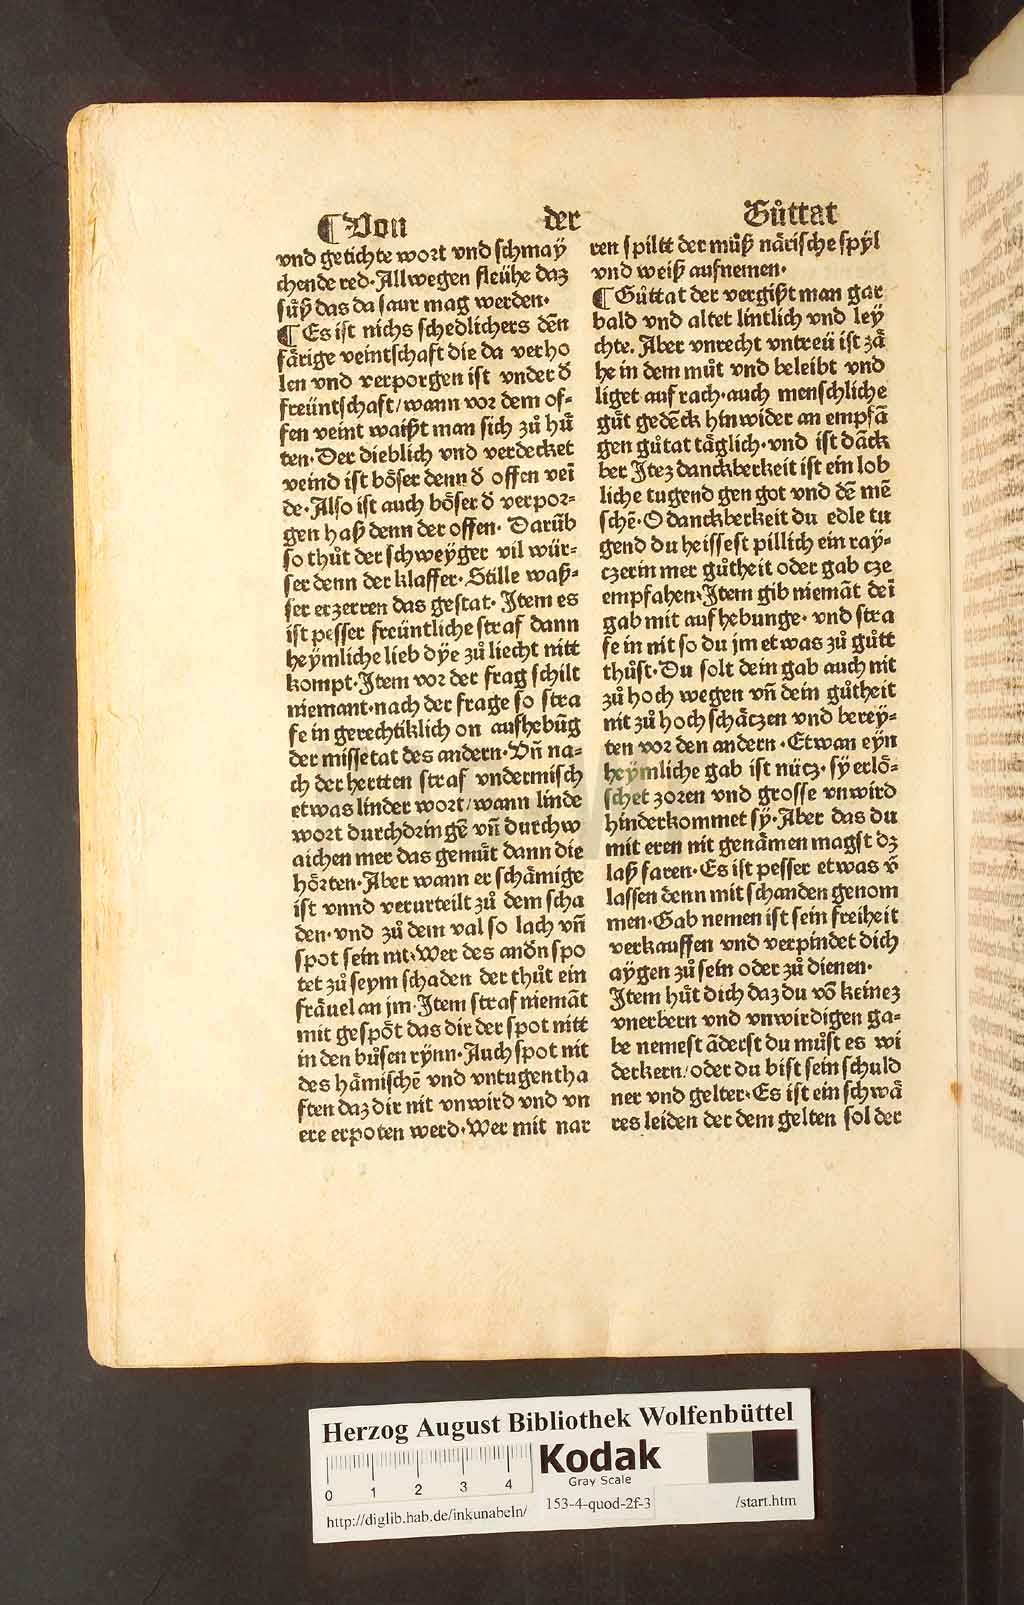 ¶Von der Gůttat
vnd getichte wort vnd schmaÿ
chende red·Allwegen fleühe daz
sůß das da saur mag werden·
¶Es ist nichs schedlichers deñ
färige veintschaft die da verho
len vnd verporgen ist vnder d̄
freüntschaft/wann vor dem of⸗
fen veint waißt man sich zů hů̈
ten·Der dieblich vnd verdecket
veind ist böser denn d̄ offen vei
de·Also ist auch böser d̄ verpor⸗
gen haß denn der offen· Darūb
so thůt der schweÿger vil wür⸗
ser denn der klaffer·Stille waß⸗
ser erzerren das gestat· Item es
ist pesser freüntliche straf dann
heÿmliche lieb dÿe zů liecht nitt
kompt·Item vor der frag schilt
niemant·nach der frage so stra
fe in gerechtiklich on aufhebūg
der missetat des andern·Vñ na⸗
ch der hertten straf vndermisch
etwas linder wort/wann linde
wort durchdringē vñ durchw
aichen mer das gemůt dann die
hörten·Aber wann er schämige
ist vnnd verurteilt zů dem scha
den·vnd zů dem val so lach vñ
spot sein nit·Wer des and̄n spo
tet zů seym schaden der thůt ein
fräuel an jm·Item straf niemāt
mit gespöt das dir der spot nitt
in den bůsen rÿnn·Auch spot nit
des hämischē vnd vntugentha
ften daz dir nit vnwird vnd vn
ere erpoten werd·Wer mit nar
ren spiltt der můß närische spÿl
vnd weiß aufnemen·
¶Gůttat der vergißt man gar
bald vnd altet lintlich vnd leÿ
chte. Aber vnrecht vntreü ist zä
he in dem můt vnd beleibt vnd
liget auf rach·auch menschliche
gůt gedēck hinwider an empfā
gen gůtat täglich·vnd ist dāck
ber Itez danckberkeit ist ein lob
liche tugend gen got vnd dē mē
schē·O danckberkeit du edle tu
gend du heissest pillich ein ray⸗
czerin mer gůtheit oder gab cze
empfahen·Item gib niemāt dei
gab mit aufhebunge· vnd stra
fe in nit so du jm etwas zů gůtt
thůst·Du solt dein gab auch nit
zů hoch wegen vñ dein gůtheit
nit zů hoch schäczen vnd bereÿ⸗
ten vor den andern ·Etwan eÿn
heÿmliche gab ist nücz·sÿ erlö⸗
schet zoren vnd grosse vnwird
hinderkommet sÿ·Aber das du
mit eren nit genämen magst dz
laß faren·Es ist pesser etwas v̄
lassen denn mit schanden genom
men·Gab nemen ist sein freiheit
verkauffen vnd verpindet dich
aÿgen zů sein oder zů dienen·
Item hůt dich daz du vō keinez
vnerbern vnd vnwirdigen ga⸗
be nemest āderst du můst es wi
derkern/oder du bist sein schuld
ner vnd gelter·Es ist ein schwä
res leiden der dem gelten sol der
Herzog August Bibliothek Wolfenbüttel
0 1 2 3 4
Kodak
Gray Scale
http://diglib.hab.de/inkunabeln/ 153-4-quod-2f-3 /start.htm